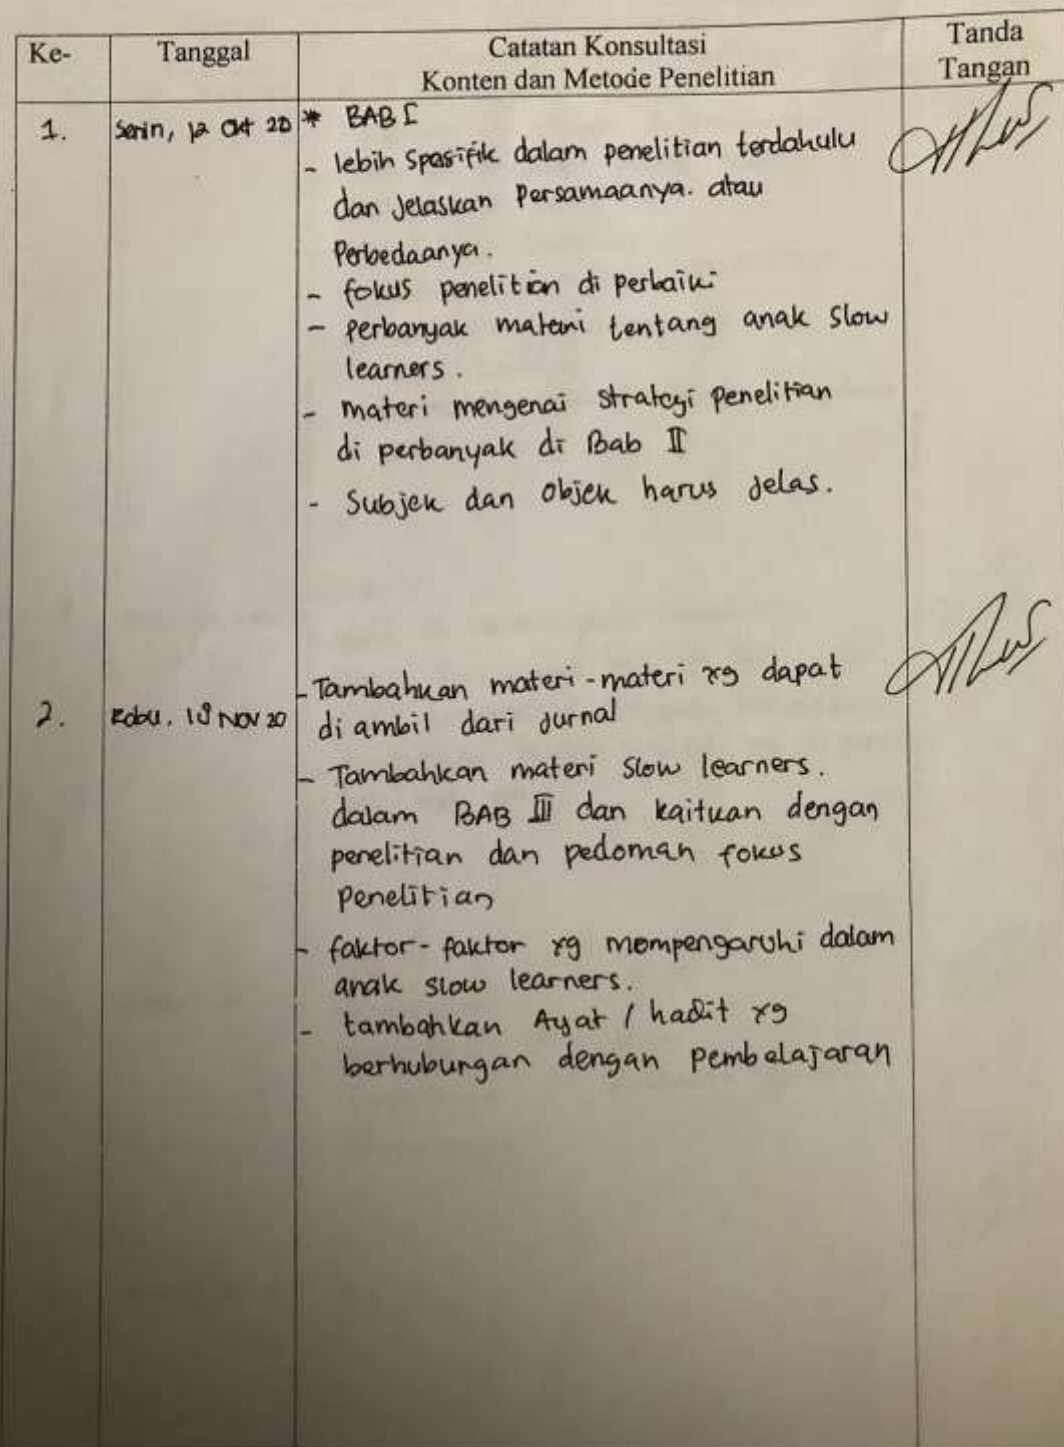 Ke- Tanggal Catatan Konsultasi Konten dan Metode Penelitian Tanda Tangan
1. Senin, 12 Okt 20 * BAB I
- lebih spesifik dalam penelitian terdahulu
dan jelaskan Persamaanya. atau
Perbedaanya.
- fokus penelitian di perbaiki
- perbanyak materi tentang anak slow
learners.
- materi mengenai strategi penelitian
di perbanyak di Bab II
- Subjek dan objek harus jelas.
- Tambahkan materi-materi yg dapat
2. Rabu, 18 NOV 20 di ambil dari jurnal
- Tambahkan materi slow learners.
dalam BAB III dan kaitkan dengan
penelitian dan pedoman fokus
penelitian
- faktor-faktor yg mempengaruhi dalam
anak slow learners.
- tambahkan Ayat / hadit yg
berhubungan dengan pembelajaran